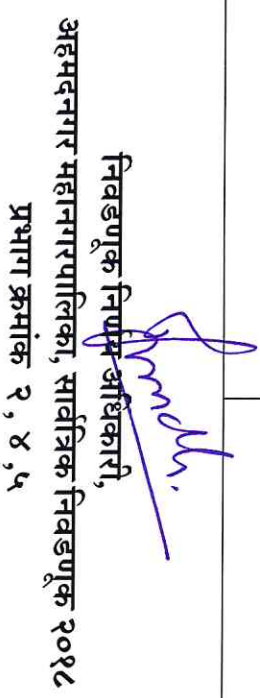 निवडणूक निर्णय अधिकारी,
अहमदनगर महानगरपालिका, सार्वत्रिक निवडणूक २०१८
प्रभाग क्रमांक २, ४,५